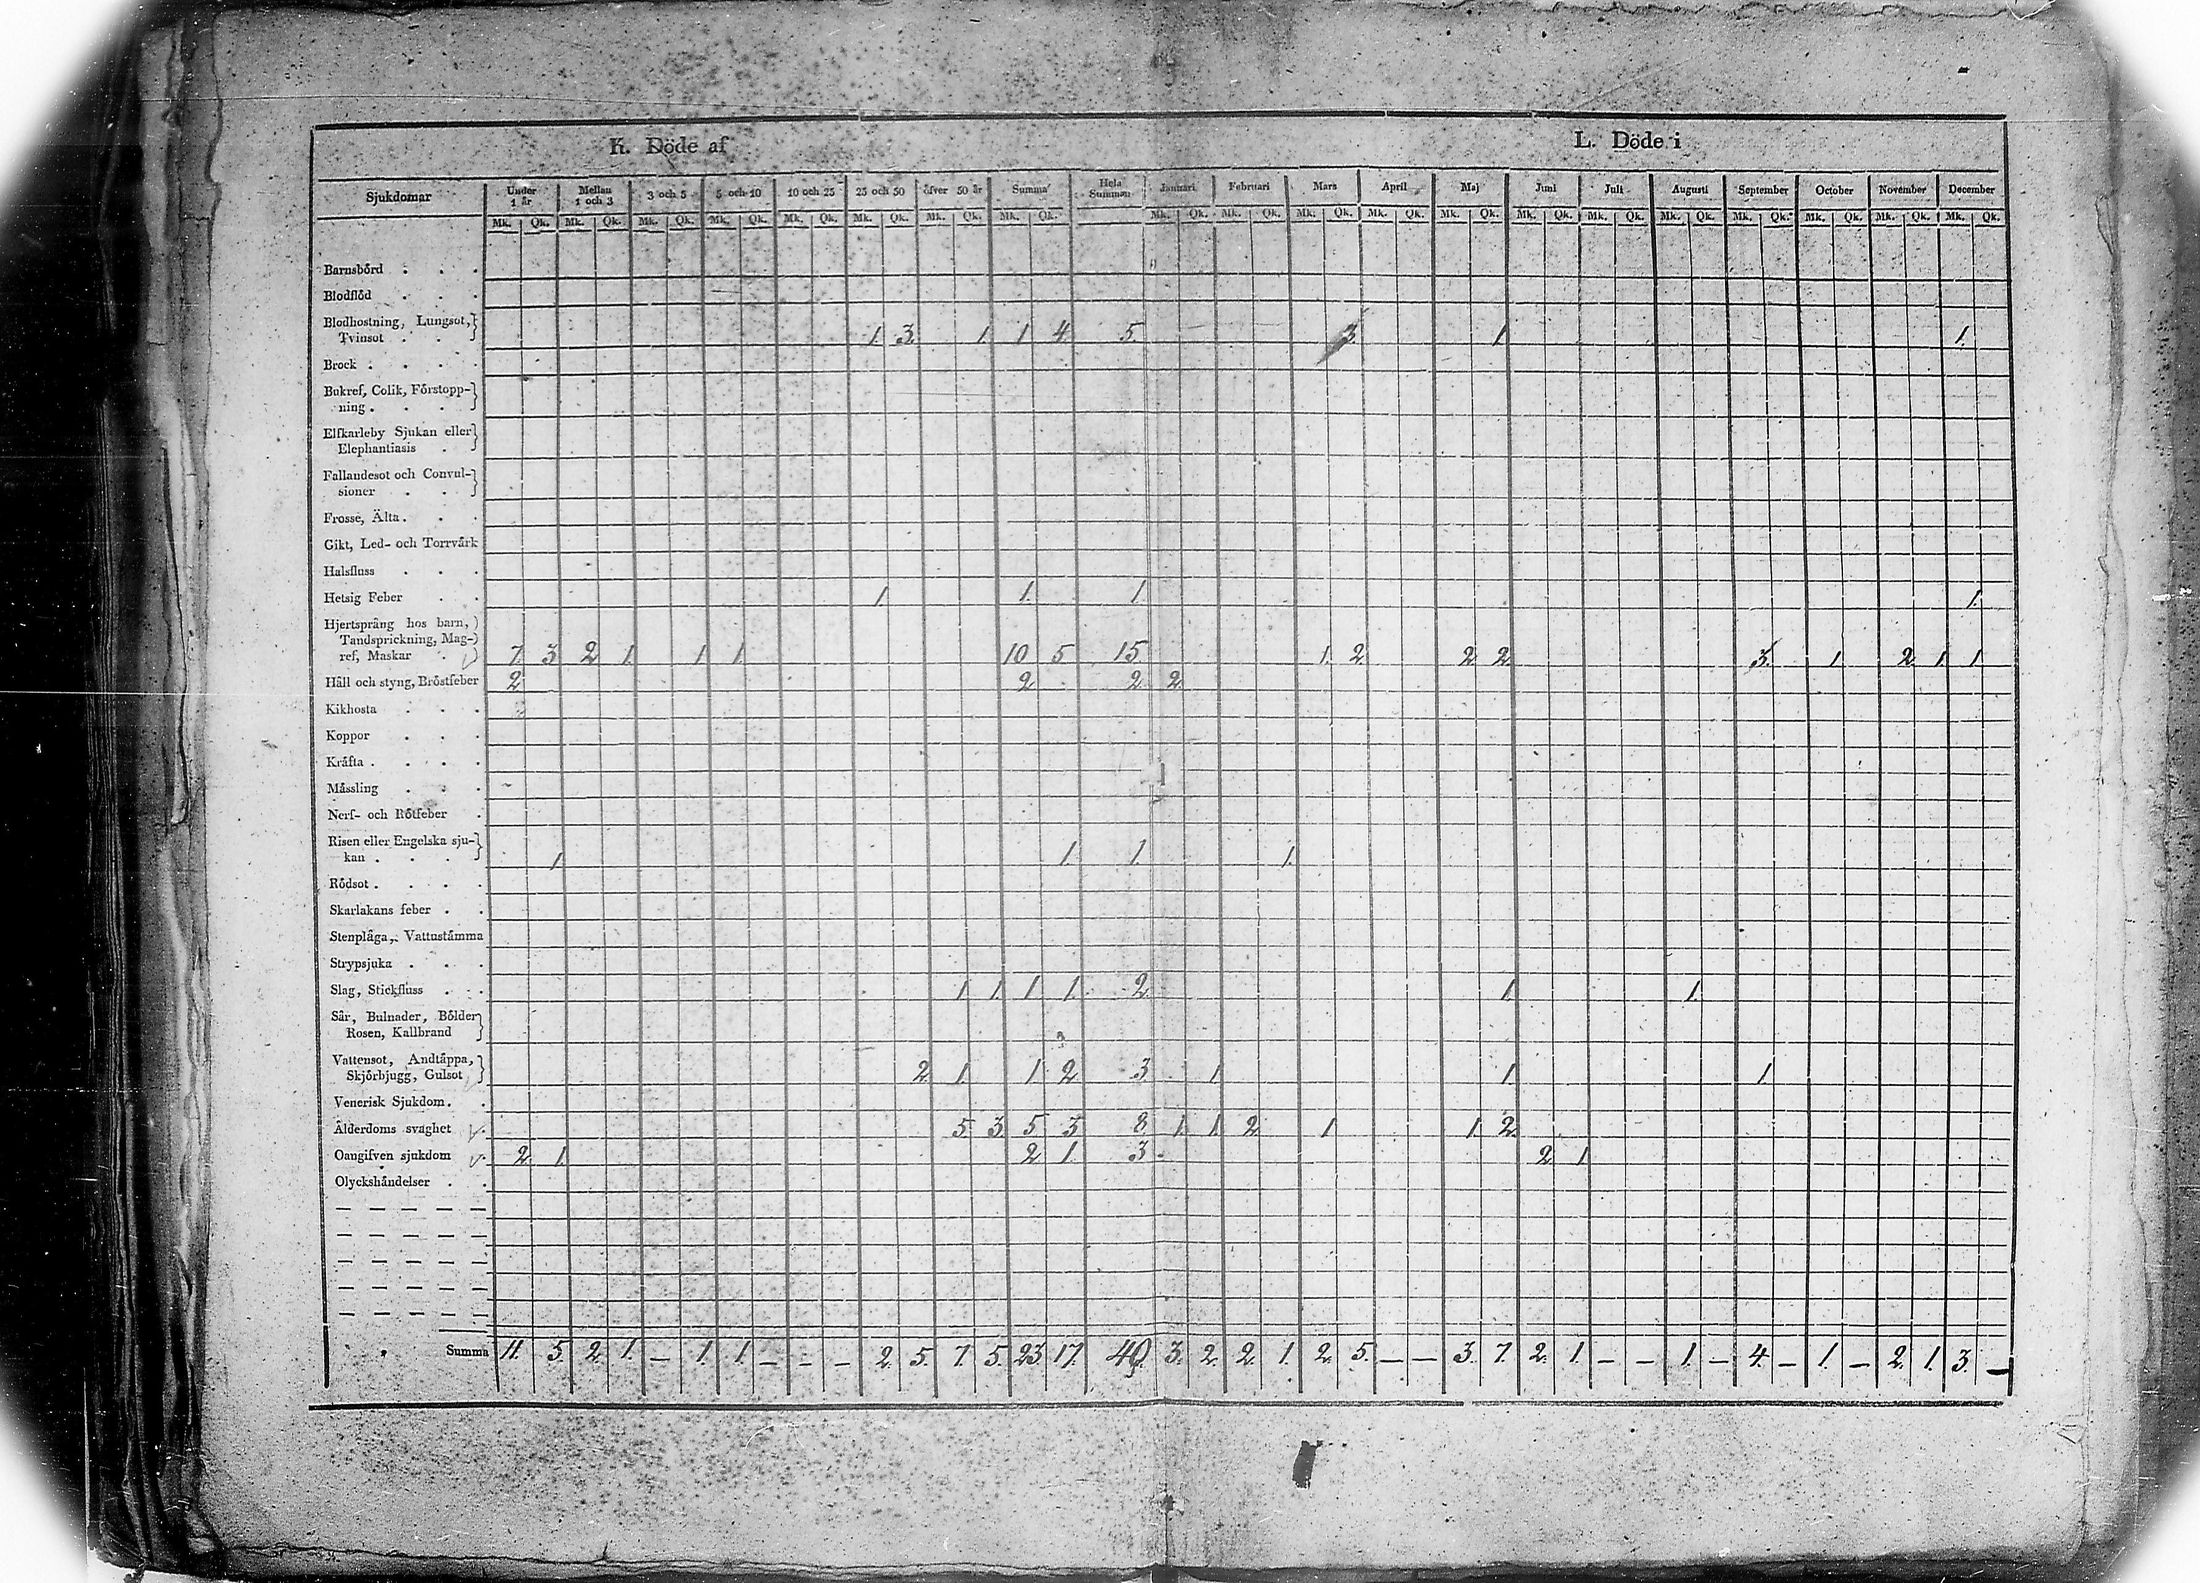 K. Döde af
L. Döde i
Sjukdomar Under 1 år Mellan 1 och 3 3 och 5 5 och 10 10 och 25 25 och 50 öfver 50 år Summa Hela Summan Januari Februari Mars April Maj Juni Juli Augusti September October November December
Mk. Qk. Mk. Qk. Mk. Qk. Mk. Qk. Mk. Qk. Mk. Qk. Mk. Qk. Mk. Qk. Mk. Qk. Mk. Qk. Mk. Qk. Mk. Qk. Mk. Qk. Mk. Qk. Mk. Qk. Mk. Qk. Mk. Qk. Mk. Qk. Mk. Qk. Mk. Qk.
Barnsbörd . . .
Blodflöd . . .
Blodhostning, Lungsot,
Tvinsot . . 1 3. 1. 1 4 5. 3. 1 1.
Brock . . . .
Bukref, Colik, Förstopp-
ning . . .
Elfkarleby Sjukan eller
Elephantiasis .
Fallandesot och Convul-
sioner . .
Frosse, Älta . . .
Gikt, Led- och Torrvärk
Halsfluss . . .
Hetsig Feber . . 1 1. 1. 1.
Hjertsprång hos barn,
Tandsprickning, Mag-
ref, Maskar . 7. 3 2 1. 1 1 10 5 15 1. 2 2 2 3. 1 2. 1. 1
Håll och styng, Bröstfeber 2 2 2. 2.
Kikhosta . . .
Koppor . . .
Kräfta . . . .
Mässling . . .
Nerf- och Rötfeber .
Risen eller Engelska sju-
kan . . . 1 1 1. 1.
Rödsot . . . .
Skarlakans feber . .
Stenplåga, Vattustämma
Strypsjuka . . .
Slag, Stickfluss . . 1 1. 1 1. 2. 1 1.
Sår, Bulnader, Bölder
Rosen, Kallbrand
Vattensot, Andtäppa,
Skjörbjugg, Gulsot 2. 1. 1 2 3. 1 1 1
Venerisk Sjukdom . .
Ålderdoms svaghet 5. 3. 5 3 8 1. 1. 2 1 1. 2.
Oangifven sjukdom 2. 1. 2 1. 3. 2. 1
Olyckshändelser . .
Summa 11. 5. 2. 1. — 1. 1. — — — 2. 5. 7. 5. 23 17. 40. 3. 2. 2. 1. 2. 5. — — 3. 7. 2. 1. — — 1. — 4. — 1. — 2. 1. 3. —